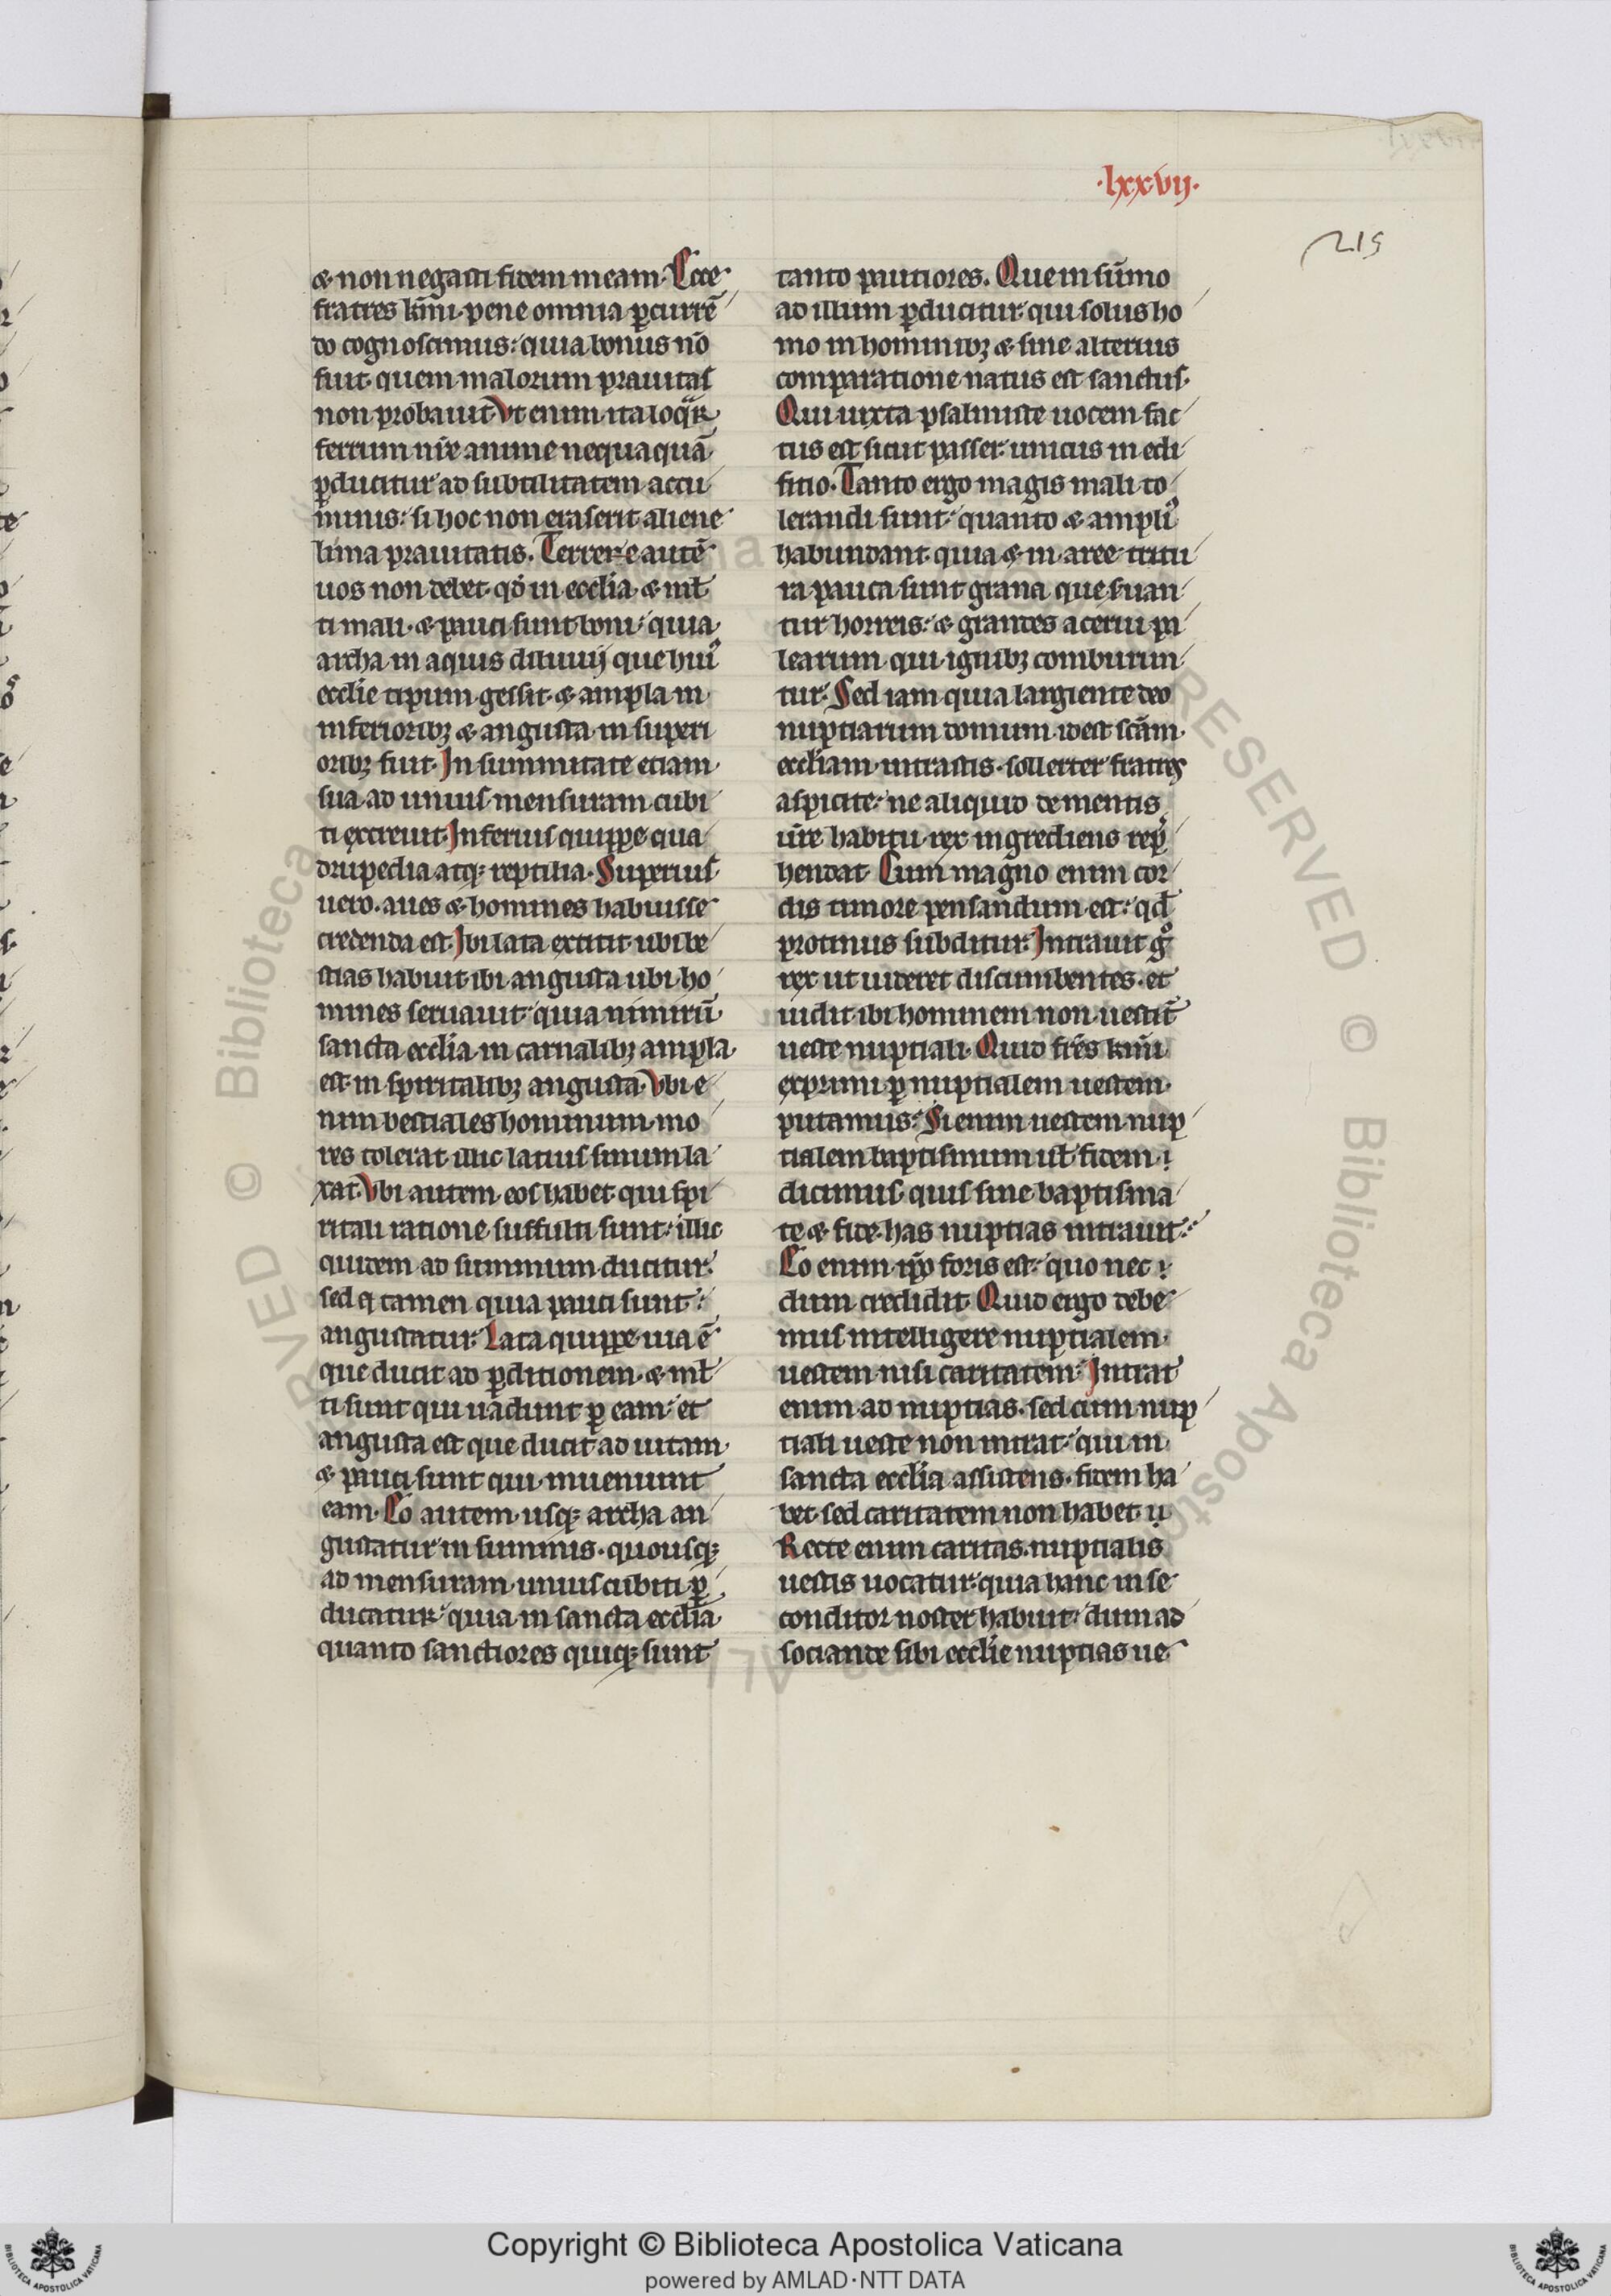 ·lxxvij·
215
& non negasti fidem meam. Ecce
fratres k̅m̅i. pene omnia ꝑcurre̅
do cognoscimus: quia bonus no̅
fuit quem malorum prauitas
non probauit. Vt enim ita loqᷓr
ferrum nr̅e anime nequaqua̅
ꝑducitur ad subtilitatem accu
minis: si hoc non eraserit aliene
lima prauitatis. Terrere aute̅
uos non debet. qd̓ in ecclia̅ & ml̅
ti mali. & pauci sunt boni: quia
archa in aquis diluuij que huiꝰ
ecclie̅ tipum gessit. & ampla in
inferioribꝫ & angusta in superi
oribꝫ fuit. In summitate etiam
sua ad unius mensuram cubi
ti excreuit. Inferius quippe qua
drupedia atqꝫ reptilia. Superius
uero. aues & homines habuisse
credenda est. Ibi lata extitit ubi be
stias habuit ibi angusta ubi ho
mines seruauit: quia nimiru̅
sancta ecclia̅ in carnalibꝫ ampla
est. in spiritalibꝫ angusta. Vbi e
nim bestiales hominum mo
res tolerat illic latius sinum la
xat. Vbi autem eos habet qui spi
ritali ratione suffulti sunt: illic
quidem ad summum ducitur.
sed tamen quia pauci sunt:
angustatur. Lata quippe uia e̅
que ducit ad ꝑditionem. & ml̅
ti sunt qui uadunt ꝑ eam: et
angusta est que ducit ad uitam
& pauci sunt qui inueniunt
eam. Eo autem usqꝫ archa an
gustatur in summis. quousqꝫ
ad mensuram unius cubiti ꝑ
ducatur: quia in sancta ecclia̅
quanto sanctiores quiqꝫ sunt
tanto pautiores. Que in su̅mo
ad illum ꝑducitur qui solus ho
mo in hominibꝫ & sine alterius
comparatione natus est sanctus.
Qui iuxta psalmiste uocem fac
tus est sicut passer unicus in edi
fitio. Tanto ergo magis mali to
lerandi sunt: quanto & ampliꝰ
habundant. quia & in aree tritu
ra pauca sunt grana que s̓uan
tur horreis: & grandes acerui pa
learum qui ignibꝫ comburun
tur. Sed iam quia largiente deo
nuptiarum domum idest sca̅m
eccliam̅ intrastis. sollerter fratres
aspicite: ne aliquid de mentis
ur̅e habitu rex ingrediens rep̓
hendat. Cum magno enim cor
dis timore pensandum est: qd̅
protinus subditur. Intrauit gͦ
rex ut uideret discumbentes. et
uidit ibi hominem non uestit̅
ueste nuptiali. Quid fr̅s k̅m̅i
exprimi ꝑ nuptialem uestem
putamus: Si enim uestem nup
tialem baptismum ul̅ fidem
dicimus. quis sine baptisma
te & fide. has nuptias intrauit:
Eo enim ip̅o foris est: quo nec
dum credidit. Quid ergo debe
mus intelligere nuptialem
uestem nisi caritatem: Intrat
enim ad nuptias. sed cum nup
tiali ueste non intrat: qui in
sancta ecclia̅ assistens. fidem ha
bet sed caritatem non habet.
Recte enim caritas. nuptialis
uestis uocatur: quia hanc in se
conditor noster habuit: dum ad
sociande sibi ecclie̅ nuptias ue
© Biblioteca Apostolica Vaticana
Copyright © Biblioteca Apostolica Vaticana
powered by AMLAD·NTT DATA